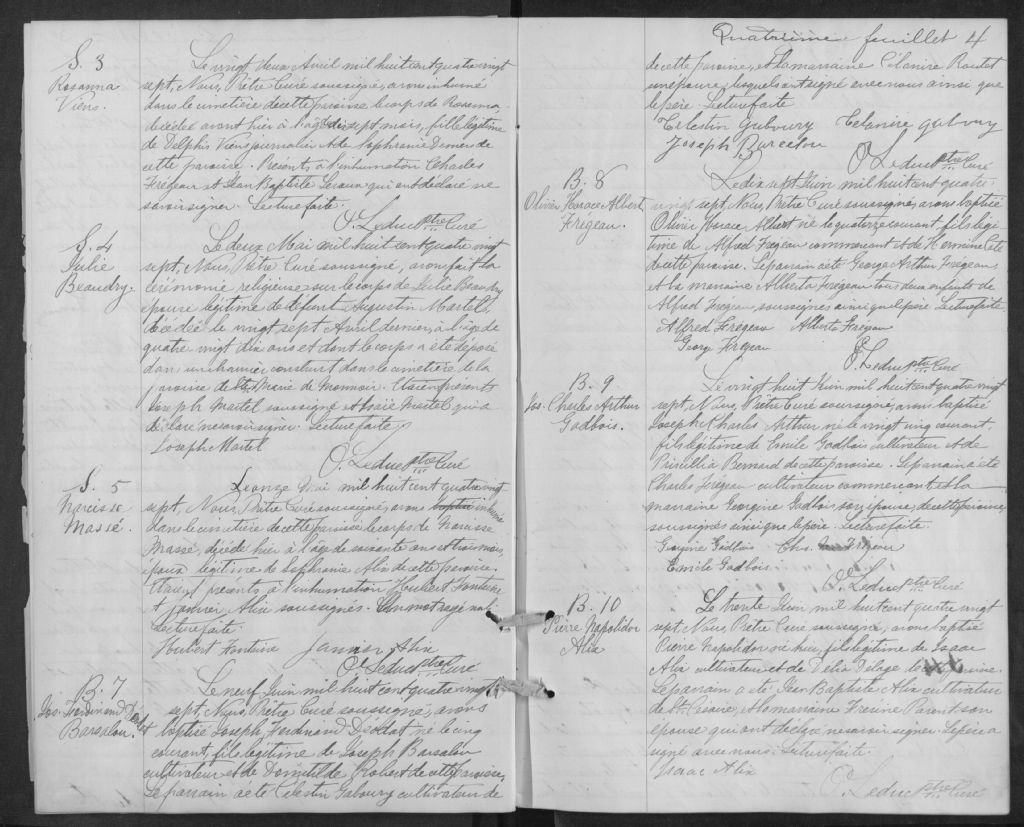 S. 3
Rosanna
Viens.
Le vingt deux Avril mil huit cent quatre vingt
sept, Nous, Prêtre Curé soussigné, avons inhumé
dans le cimetière de cette paroisse le corps de Rosanna
décédée avant hier à l'âge de sept mois, fille légitime
de Delphis Viens journalier et de Sophranie Demers de
cette paroisse. Présents à l'inhumation Charles
Frégeau et Jean Baptiste Leroux qui ont déclaré ne
savoir signer. Lecture faite.
O. Leduc ptre Curé
S. 4
Julie
Beaudry.
Le deux Mai mil huit cent quatre vingt
sept, Nous, Prêtre Curé soussigné, avons fait la
cérémonie religieuse sur le corps de Julie Beaudry
épouse légitime de défunt Augustin Martel,
décédée le vingt sept Avril dernier, à l'âge de
quatre vingt dix ans et dont le corps a été déposé
dans un charnier construit dans le cimetière de la
paroisse de Ste Marie de Monnoir. Etaient présents
Joseph Martel soussigné et Martel qui a
déclaré ne savoir signer. Lecture faite
Joseph Martel
O. Leduc ptre Curé
S. 5
Narcisse
Massé.
Le onze Mai mil huit cent quatre vingt
sept, Nous, Prêtre Curé soussigné, avons baptisé inhumé
dans le cimetière de cette paroisse le corps de Narcisse
Massé, décédé hier à l'âge de soixante ans et trois mois,
époux légitime de Sophranie Alix de cette paroisse.
Etaient présents à l'inhumation Houbert Fontaine
et Janvier Alix soussignés. Un mot rayé nul.
Lecture faite.
Houbert Fontaine Janvier Alix
O. Leduc ptre Curé
B. 7
Jos. Ferdinand Déodat
Barsalou.
Le neuf Juin mil huit cent quatre vingt
sept, Nous, Prêtre Curé soussigné, avons
baptisé Joseph, Ferdinand Déodat né le cinq
courant, fils légitime de Joseph Barsalou
cultivateur et de Domitilde Robert de cette paroisse,
Le parrain a été Célestin Gaboury cultivateur de
Quatrième feuillet 4
de cette paroisse, et la marraine Célanire Boudet
une épouse, lesquels ont signé avec nous ainsi que
le père. Lecture faite
Celestin Guboury Celanire Gubury
Joseph Barselou
O. Leduc ptre Curé
B. 8
Olivier Horace Albert
Frégeau.
Le dix sept Juin mil huit cent quatre
vingt sept, Nous, Prêtre Curé soussigné, avons baptisé
Olivier Horace Albert né le quatorze courant, fils légi
time de Alfred Frégeau commerçant et de Hermine Coté
de cette paroisse. Le parrain a été George Arthur Frégeau,
et la marraine Alberta Frégeau tous deux enfants de
Alfred Frégeau, soussignés ainsi que le père. Lecture faite
Alfred Fregeau Alberta Fregeau
George Fregeau
O. Leduc ptre Curé
B. 9
Jos. Charles Arthur
Godbois.
Le vingt huit Juin mil huit cent quatre vingt
sept, Nous, Prêtre Curé soussigné, avons baptisé
Joseph Charles Arthur né le vingt cinq courant,
fils légitime de Emile Godbois cultivateur et de
Priscillia Bernard de cette paroisse. Le parrain a été
Charles Fregeau cultivateur commerçant et la
marraine Georgine Godbois son épouse, de cette paroisse,
soussignés ainsi que le père. Lecture faite.
Georgine Godbois Chs. Fregeau
Emile Godbois.
O. Leduc ptre Curé
B. 10
Pierre Napolidor
Alix
Le trente Juin mil huit cent quatre vingt
sept, Nous, Prêtre Curé soussigné, avons baptisé
Pierre Napolidor né hier, fils légitime de Isaac
Alix cultivateur et de Delia Delage de
Le parrain a été Jean Baptiste Alix cultivateur
de St. Césaire, et la marraine son
épouse qui ont déclaré ne savoir signer. Le père a
signé avec nous. Lecture faite.
Isaac Alix
O. Leduc ptre Curé